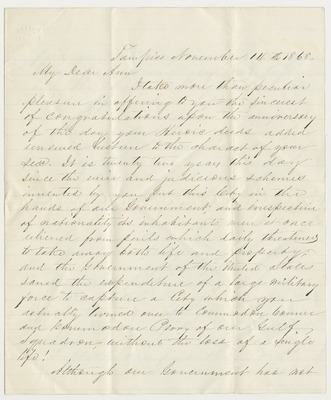 Tampico November 14th 1868.
My Dear Ann
I take more than peculiar
pleasure in offering to you the sincerest
of congratulations upon the anniversary
of the day your heroic deeds added
renewed lustre to the charact of your
sex. It is twenty two years this day
since the wise and judicious schemes
invented by you put this City in the
hands of our Government, and irrespective
of nationality its inhabitant were at once
relieved from perils which daily threatened
to take away both life and property,
and the Government of the United States
saved the expenditure of a large military
force to capture a City which you
actually turned over to Commodore Conner
and Commodore Perry of our Gulf
Squadron, without the loss of a single
life!
Although our Government has not